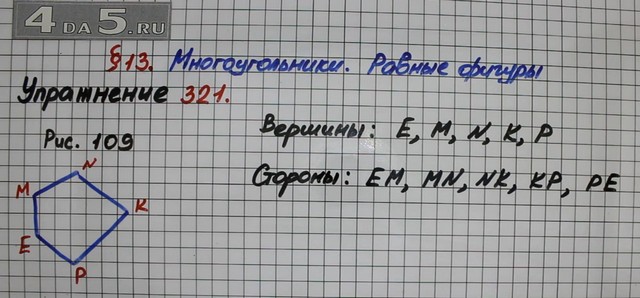 4ДА5.RU
§13. Многоугольники. Равные фигуры
Упражнение 321.
Рис. 109
Вершины: E, M, N, K, P
Стороны: EM, MN, NK, KP, PE
N
M
K
E
P